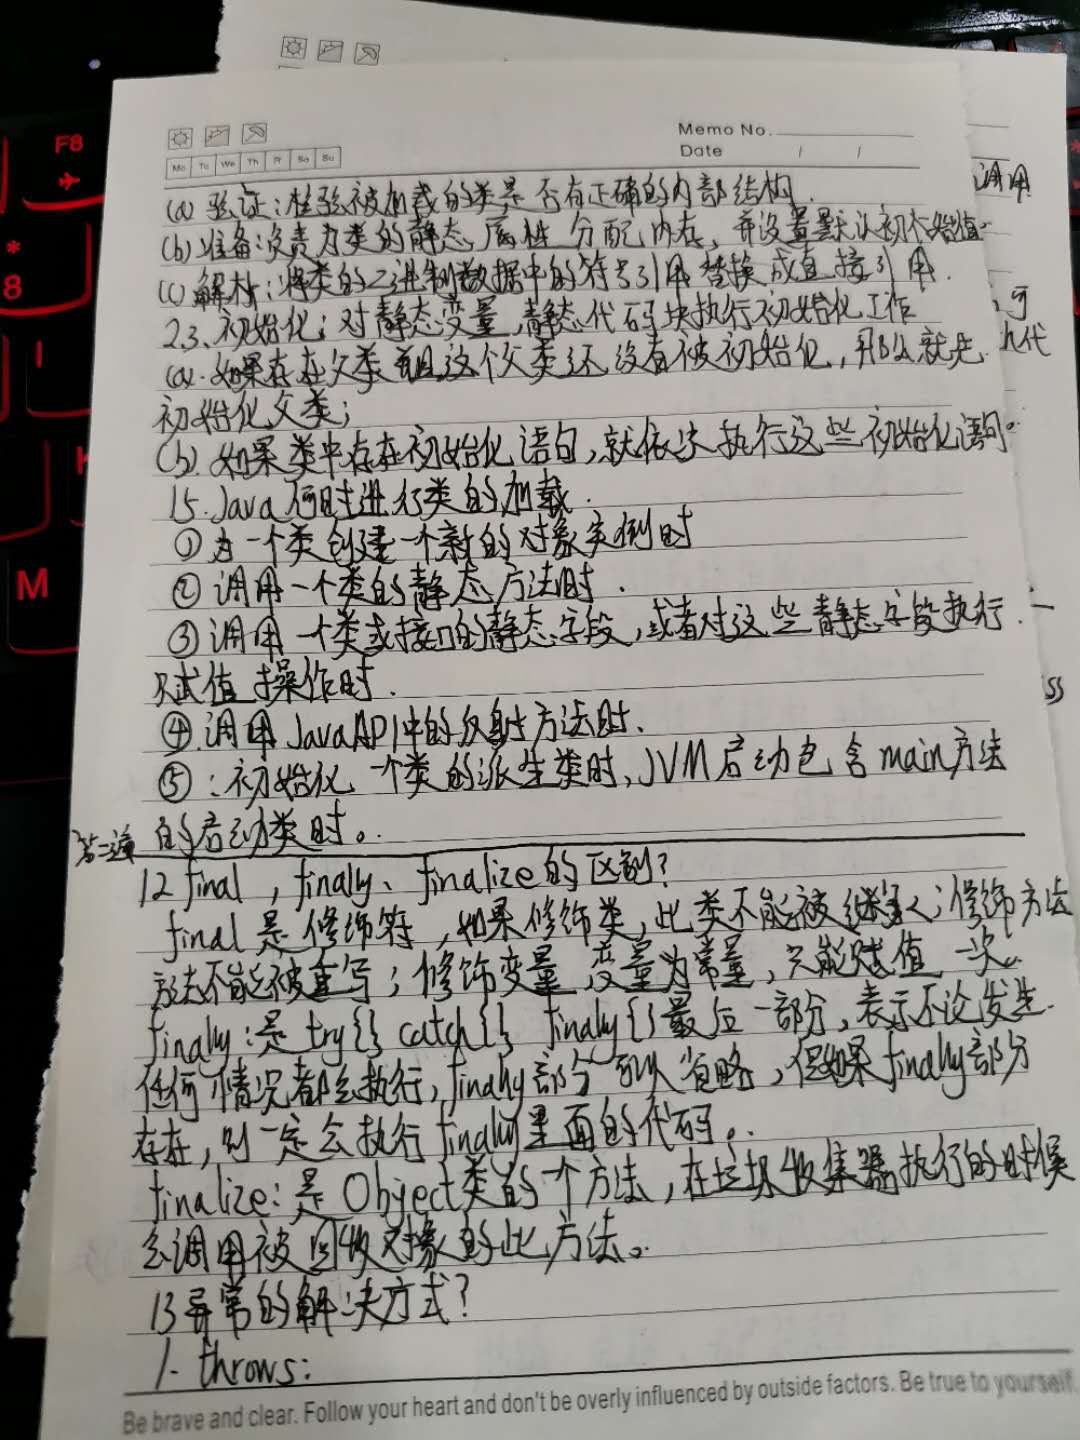 Memo No.
Date / /
Mo Tu We Th Fr Sa Su
(a) 验证:检验被加载的类是否有正确的内部结构.
(b) 准备:负责为类的静态属性分配内存,并设置默认初始值
(c) 解析:将类的二进制数据中的符号引用替换成直接引用.
2.3、初始化:对静态变量,静态代码块执行初始化工作
(a). 如果存在父类且这个父类还没有被初始化,那么就先
初始化父类;
(b). 如果类中存在初始化语句,就依次执行这些初始化语句。
15.Java何时进行类的加载.
① 为一个类创建一个新的对象实例时
② 调用一个类的静态方法时.
③ 调用一个类或接口的静态字段,或者对这些静态字段执行
赋值操作时.
④.调用JavaAPI中的反射方法时.
⑤:初始化一个类的派生类时,JVM启动包含main方法
的启动类时。
第二遍
12 final,finally、finalize的区别?
final是修饰符,如果修饰类,此类不能被继承;修饰方法
方法不能被重写;修饰变量,变量为常量,只能赋值一次。
finally:是try{} catch{} finally{}最后一部分,表示不论发生
任何情况都会执行,finally部分可以省略,但如果finally部分
存在,则一定会执行finally里面的代码。
finalize:是Object类的一个方法,在垃圾收集器执行的时候
会调用被回收对象的此方法。
13异常的解决方式?
1. throws:
Be brave and clear. Follow your heart and don't be overly influenced by outside factors. Be true to yourself.
调用
可
代
ss